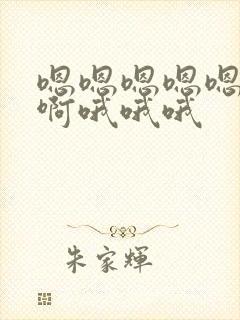 嗯嗯嗯嗯嗯
啊哦哦哦
朱家辉